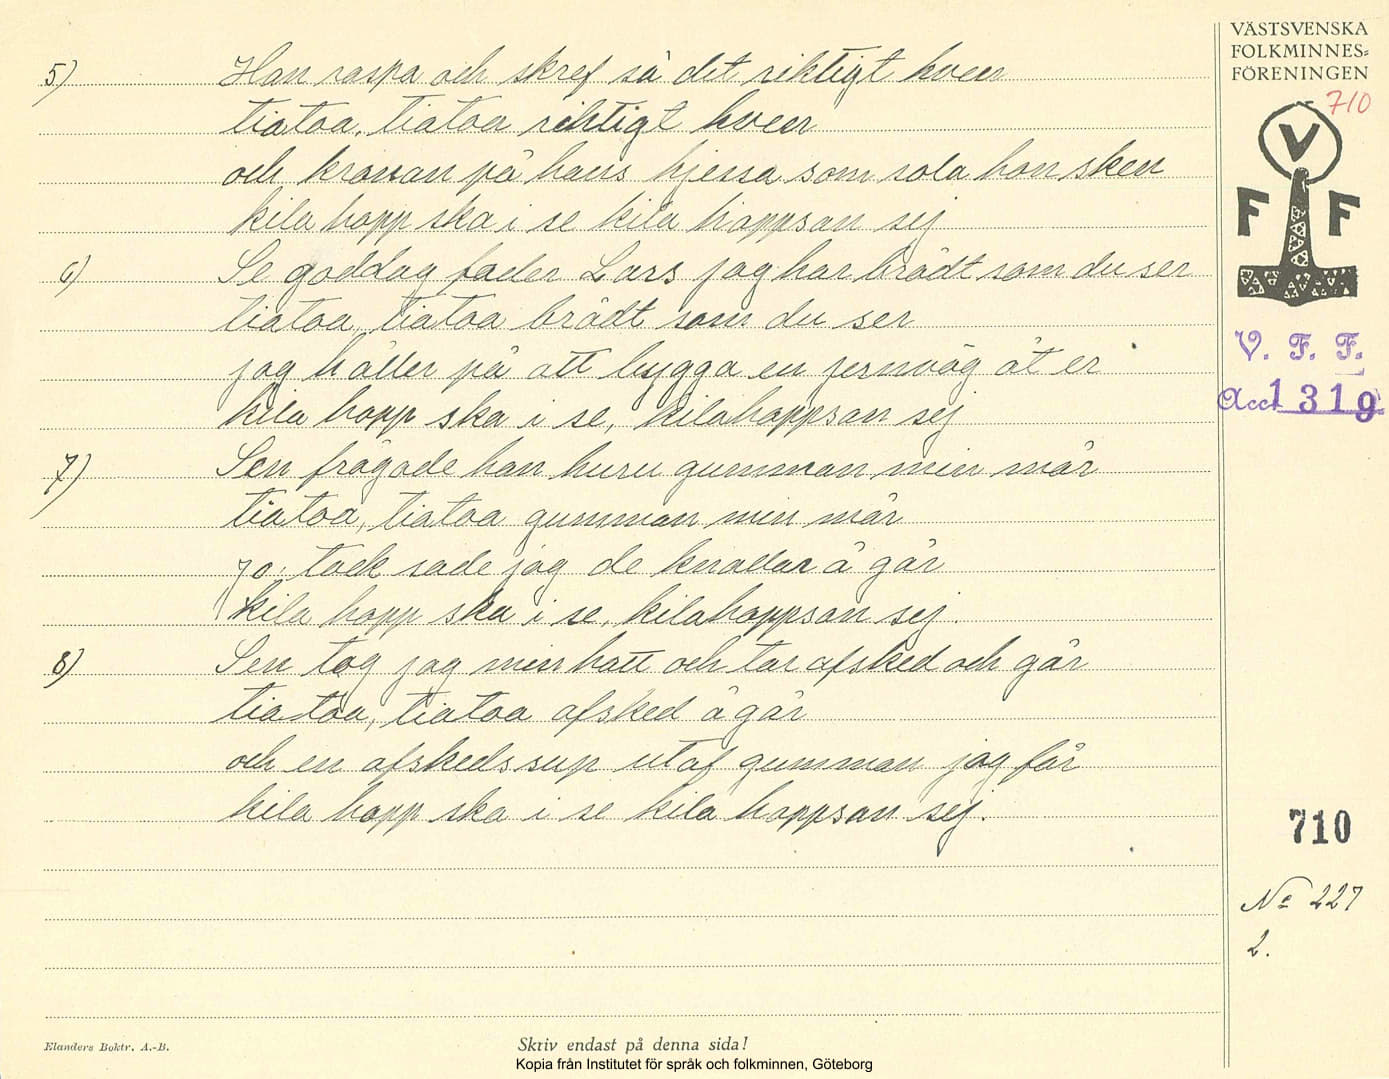 VÄSTSVENSKA
FOLKMINNES-
FÖRENINGEN
710
V
F F
V. F. F.
Acc. 1319
5) Han raspa och skref så det riktigt hven
tiatoa, tiatoa riktigt hven
och kronan på hans hjessa som sola hon sken
kila hopp ska i se kila hoppsan sej
6) Se goddag fader Lars jag har brådt som du ser
tiatoa, tiatoa brådt som du ser
jag håller på att bygga en jernväg åt er
kila hopp ska i se, kilahoppsan sej
7) Sen frågade han huru gumman min mår
tiatoa, tiatoa gumman min mår
jo, tack sade jag de knallar å går
kila hopp ska i se, kilahoppsan sej.
8) Sen tog jag min hatt och tar afsked och går
tiatoa, tiatoa afsked å går
och en afskedssup utaf gumman jag får
kila hopp ska i se kila hoppsan sej.
710
No 227
2.
Elanders Boktr. A.-B.
Skriv endast på denna sida!
Kopia från Institutet för språk och folkminnen, Göteborg